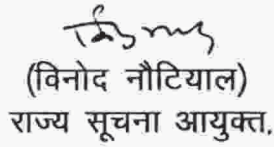 (विनोद नौटियाल)
राज्य सूचना आयुक्त,